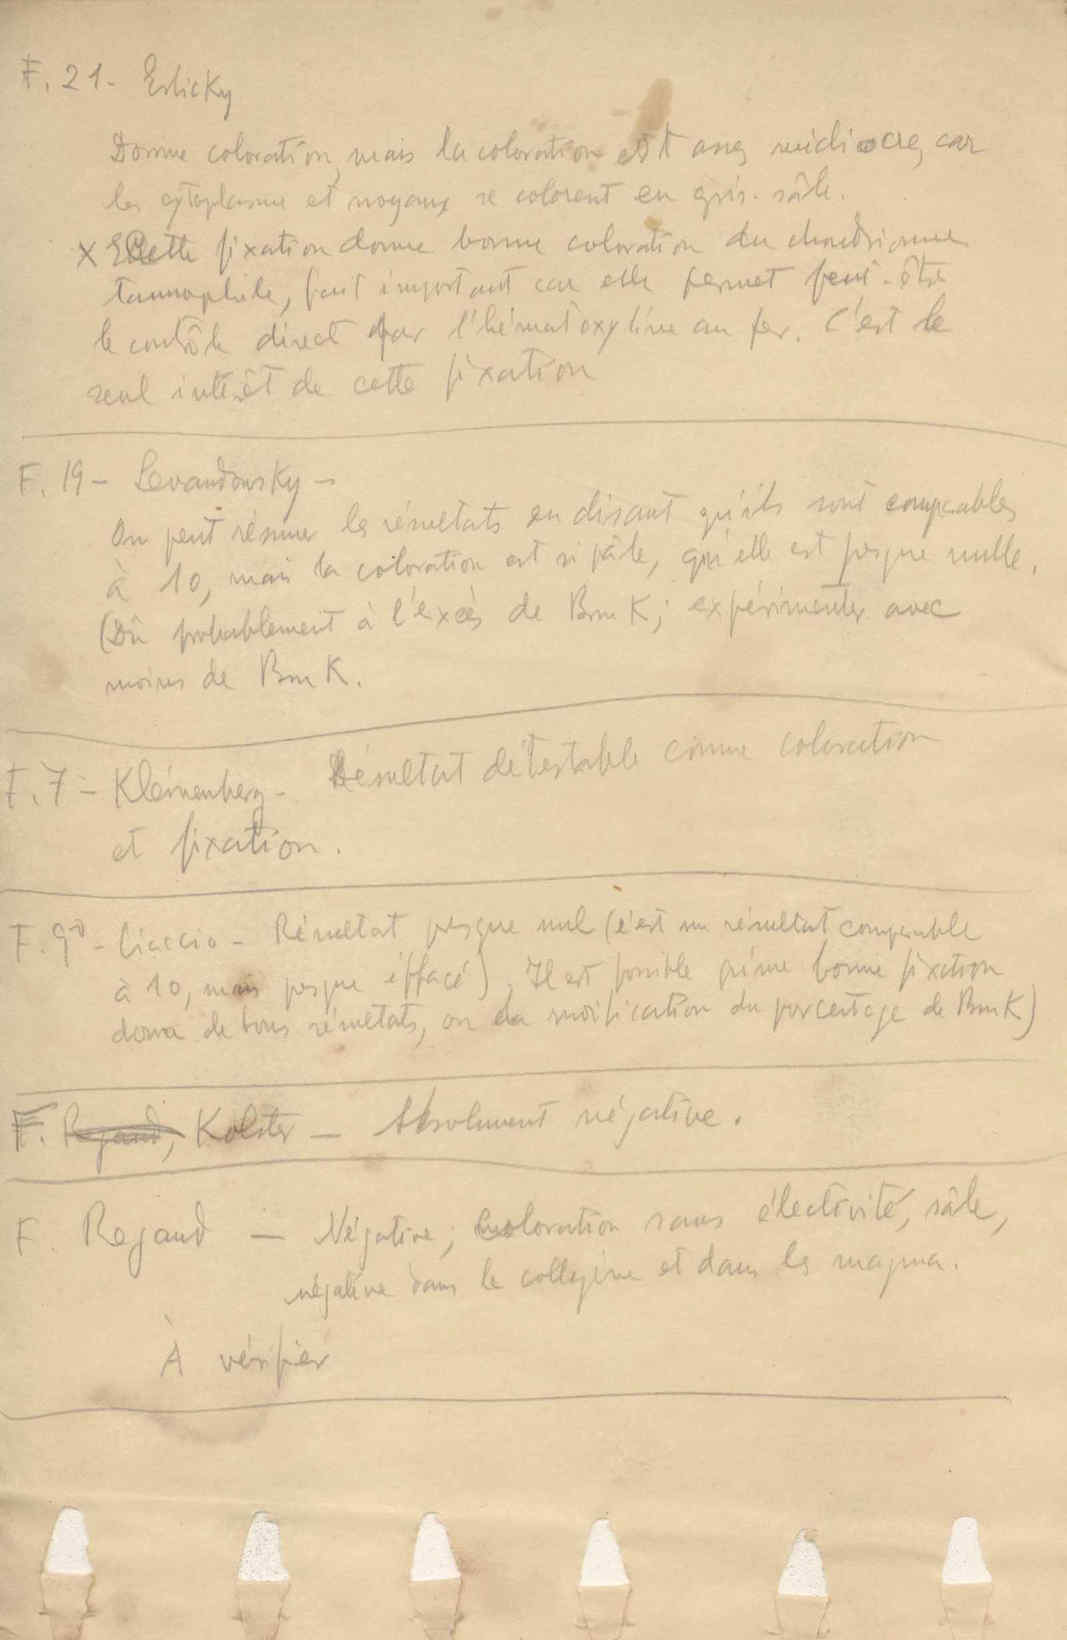 F. 21 - Erlicky
Donne coloration, mais la coloration est assez médiocre, car
les cytoplasme et noyaux se colorent en gris. sâle.
X Cette fixation donne bonne coloration du chondriome
tannophile, fait important car elle permet peut-être
le contrôle direct par l'hématoxyline au fer. C'est le
seul intérêt de cette fixation
F. 19 - Levandowsky -
On peut résumer les résultats en disant qu'ils sont comparables
à 10, mais la coloration est si pâle, qu'elle est presque nulle.
(Dû probablement à l'excès de Brm K; expérimenter avec
moins de Brm K.
F. 7 - Kleinenberg - Résultat détestable comme coloration
et fixation.
F. 9 - Ciaccio - Résultat presque nul (c'est un résultat comparable
à 10, mais presque éffacé). Il est possible qu'une bonne fixation
donne de bons résultats, ou la modification du porcentage de Brm K)
F. Regaud, Kolster - Absolument négative.
F. Regaud - Négative; coloration sans électivité, sâle,
négative dans le collagène et dans les magma.
À vérifier